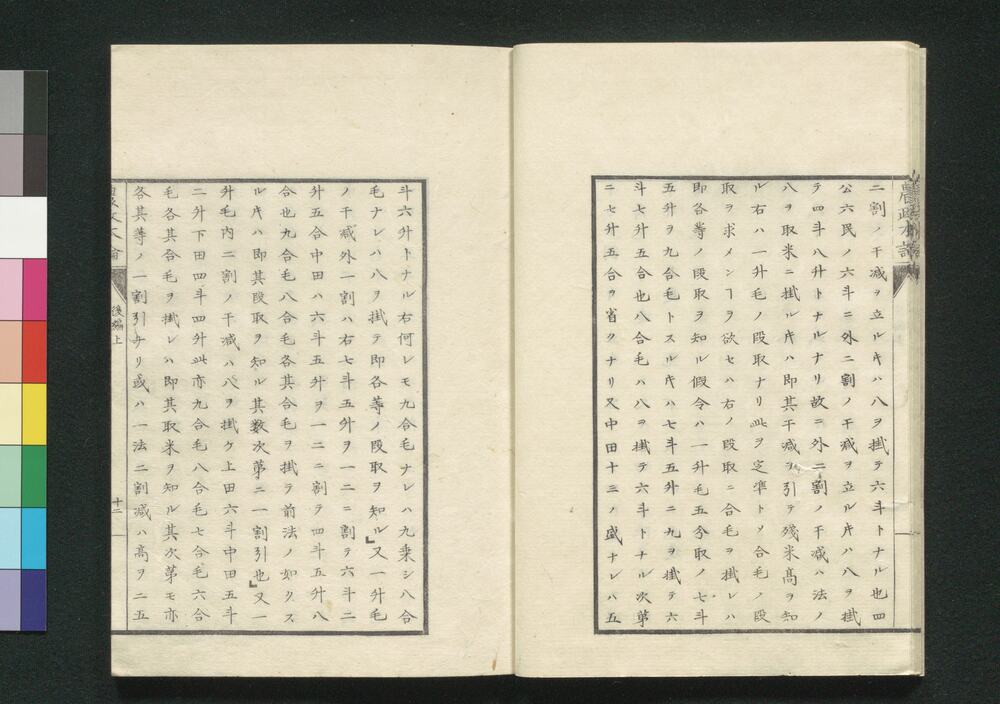 農政本論
二割ノ干減ヲ立ル𪜈ハ八ヲ掛テ六斗トナル也四
公六民ノ六斗ニ外二割ノ干減ヲ立ル𪜈ハ八ヲ掛
テ四斗八升トナルナリ故ニ外二割ノ干減ハ法ノ
八ヲ取米ニ掛ル𪜈ハ即其干減ヲ引テ残米高ヲ知
ル右ハ一升毛ノ段取ナリ此ヲ定準トソ合毛ノ段
取ヲ求メンヿヲ欲セハ右ノ段取ニ合毛ヲ掛レハ
即各等ノ段取ヲ知ル假令ハ一升毛五分取ノ七斗
五升ヲ九合毛トスル𪜈ハ七斗五升ニ九ヲ掛テ六
斗七升五合也八合毛ハ八ヲ掛テ六斗トナル次第
ニ七升五合ヲ省クナリ又中田十三ノ盛ナレハ五
斗六升トナル右何レモ九合毛ナレハ九乗シ八合
毛ナレハ八ヲ掛テ即各等ノ段取ヲ知ル』又一升毛
ノ干減外一割ハ右七斗五升ヲ一二ニ割テ六斗二
升五合中田ハ六斗五升ヲ一二ニ割テ四斗五升八
合也九合毛八合毛各其合毛ヲ掛テ前法ノ如クス
ル𪜈ハ即其段取ヲ知ル其数次第ニ一割引也』又一
升毛内二割ノ干減ハ八ヲ掛ケ上田六斗中田五斗
二升下田四斗四升此亦九合毛八合毛七合毛六合
毛各其合毛ヲ掛レハ即其取米ヲ知ル其次第モ亦
各其等ノ一割引ナリ或ハ一法二割減ハ高ヲ二五
後編上
十二